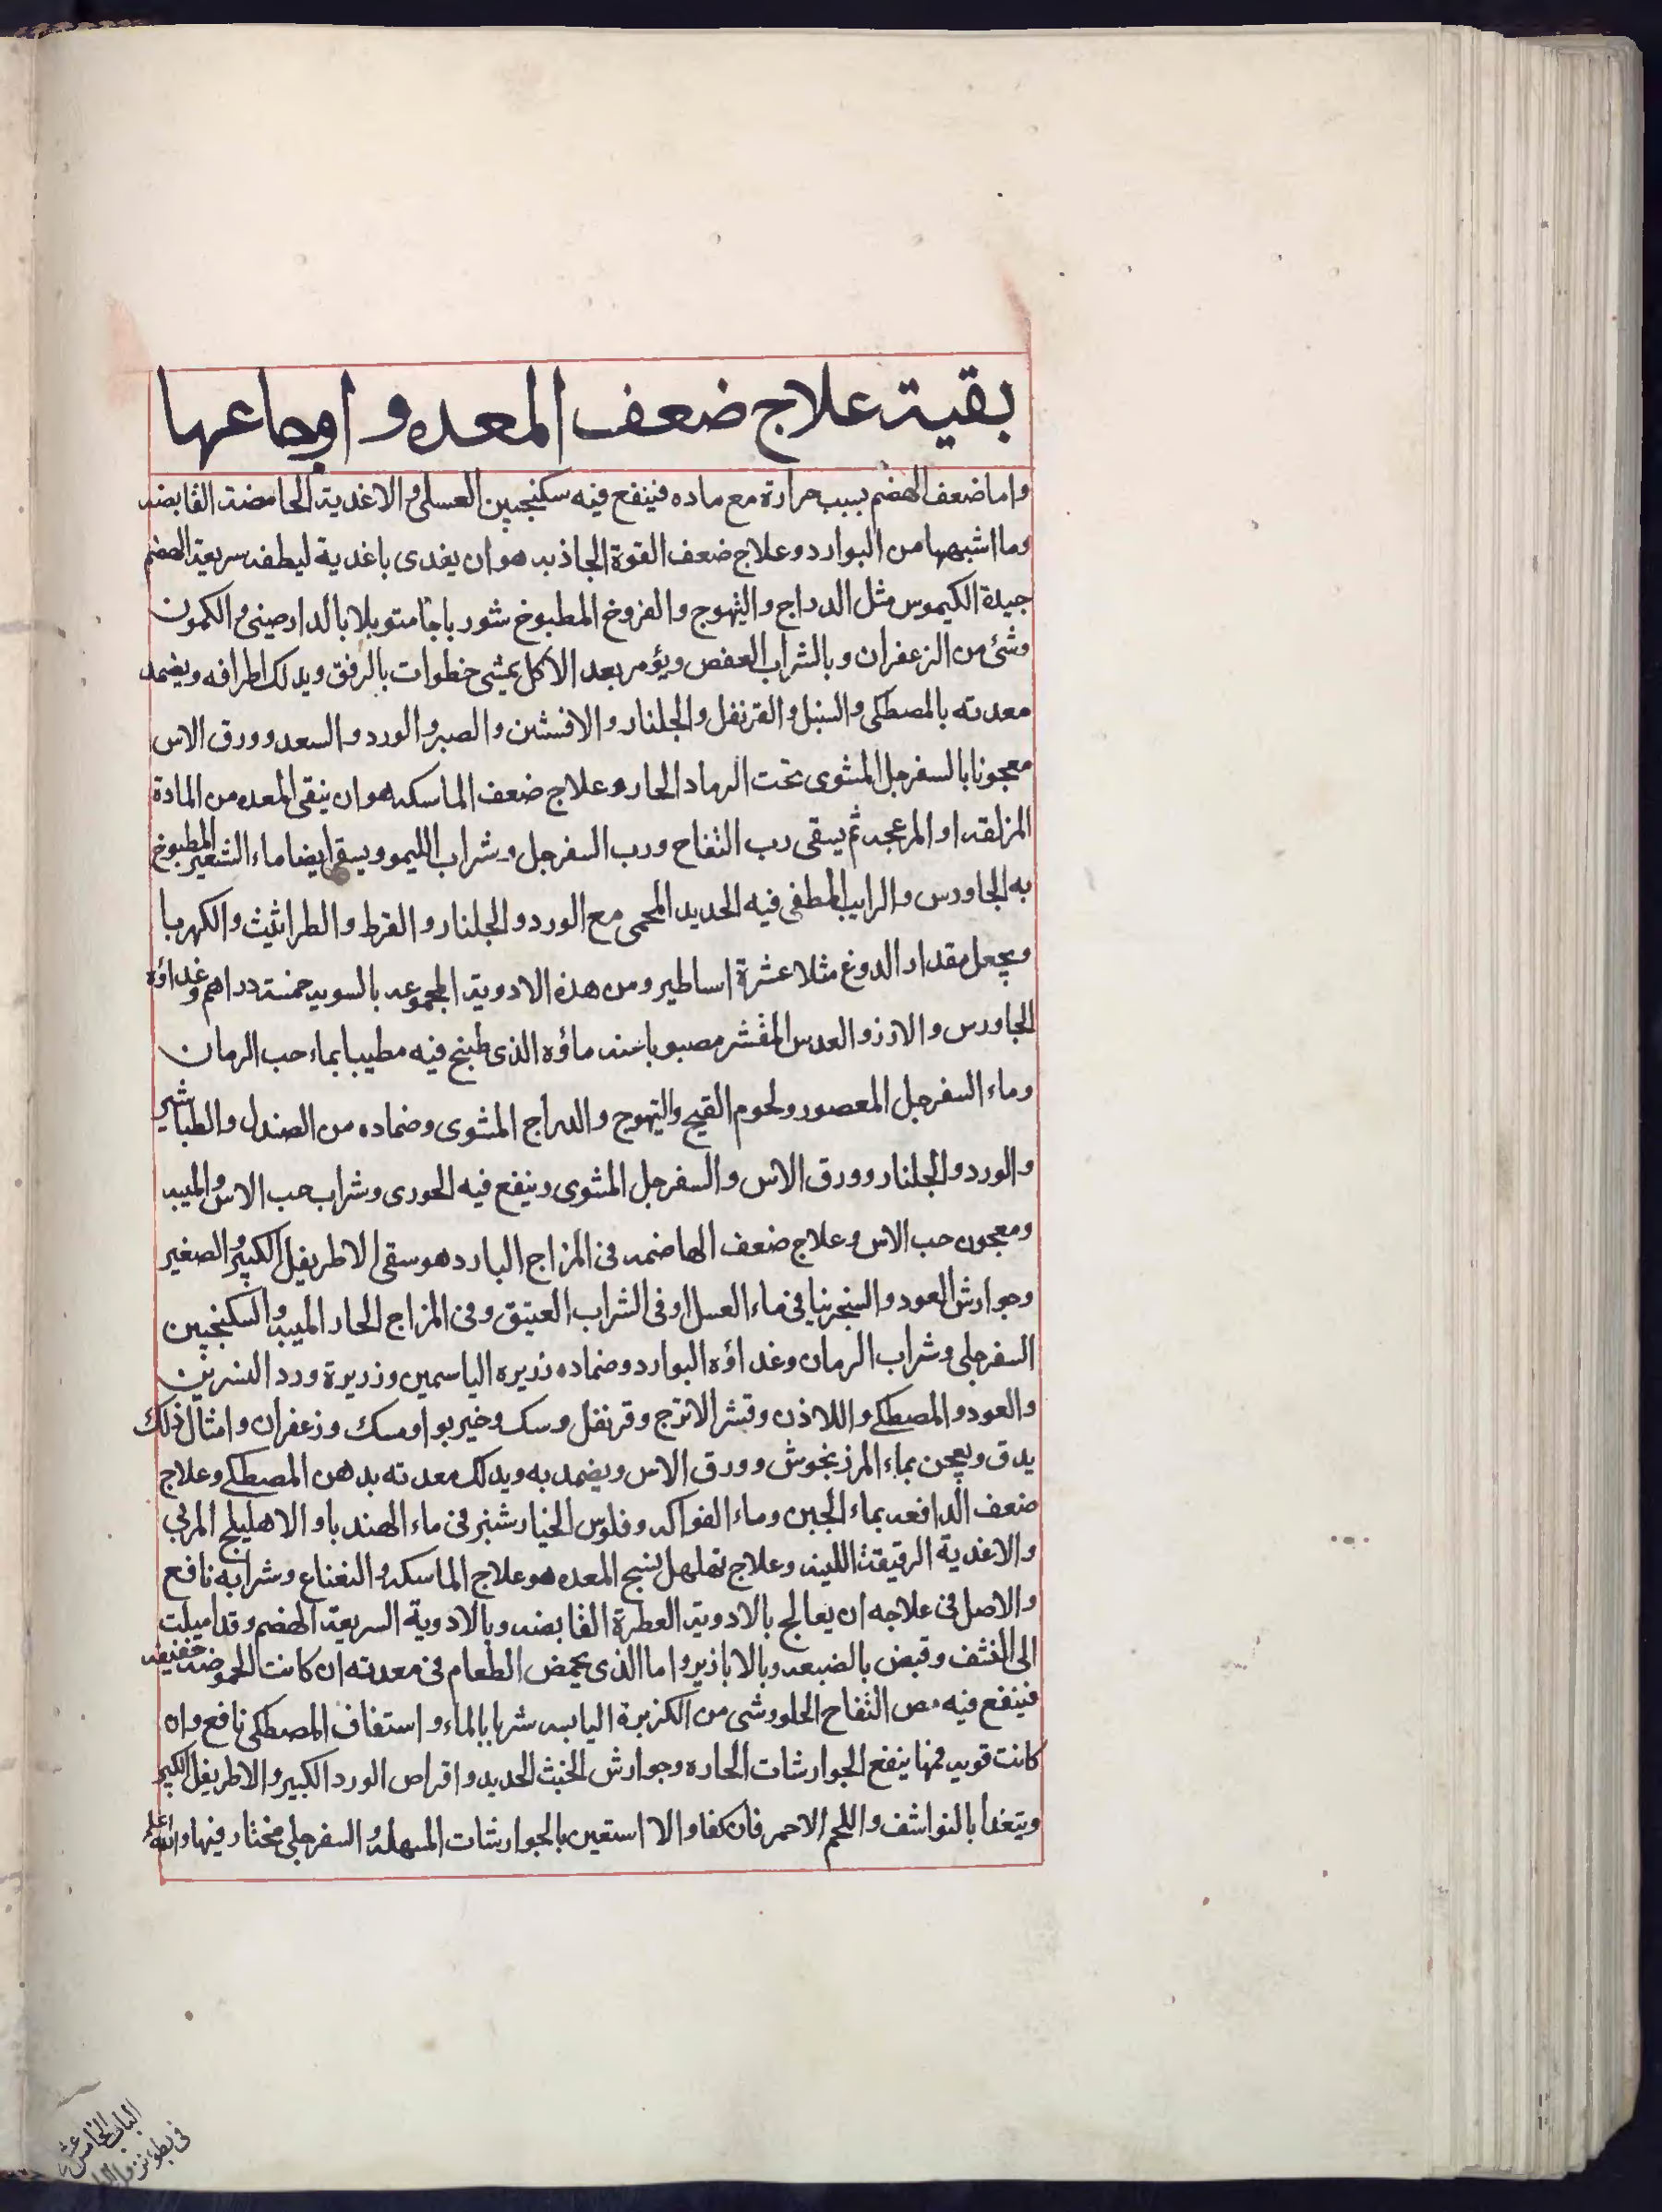 بقية علاج ضعف المعده و اوجاعها
واما ضعف الهضم بسبب حرارة مع ماده فينفع فيه سكنجبين العسلى و الاغدية الحامضة القابضه
وما اشبهها من البوارد وعلاج ضعف القوة الجاذبه هو ان يغدى باغدية لطيفه سريعة الهضم
جيدة الكيموس مثل الدراج والتيهوج والفروخ المطبوخ شورباجا متوبلا بالدارصينى و الكمون
وشئ من الزعفران وبالشراب العفص ويؤمر بعد الاكل بمشى خطوات بالرفق ويدلك اطرافه ويضمد
معدته بالمصطكى والسنبل والقرنفل والجلنار والافسنتين والصبر والورد والسعد وورق الاس
معجونا بالسفرجل المشوى تحت الرماد الحار وعلاج ضعف الماسكه هو ان ينقى المعده من المادة
المزلقه او المزعجه ثم يسقى رب التفاح ورب السفرجل وشراب الليمو ويسقى ايضا ماء الشعير المطبوخ
به الجاورس والرايب المطفى فيه الحديد المحمى مع الورد والجلنار والقرط والطراثيث والكهربا
ويجعل مقدار الدوغ مثلا عشرة اساطير ومن هذه الادوية المجموعه بالسويه خمسة دراهم وغداؤه
الجاورس والارز والعدس المقشر مصبوبا عنه ماؤه الذى طبخ فيه مطيبا بماء حب الرمان
وماء السفرجل المعصور ولحوم القبج والتيهوج والدراج المشوى وضماده من الصندل والطباشير
والورد والجلنار وورق الاس والسفرجل المشوى وينفع فيه الحورى وشراب حب الاس والميبه
ومعجون حب الاس وعلاج ضعف الهاضمه فى المزاج البارد هو سقى الاطريفل الكبير و الصغير
وجوارش العود والسنجرينا فى ماء العسل او فى الشراب العتيق وفى المزاج الحار الميبه و السكنجبين
السفرجلى وشراب الرمان وغداؤه البوارد وضماده ذريره الياسمين وذريرة ورد النسرين
والعود والمصطكى واللاذن وقشر الاترج وقرنفل وسك وخيربوا ومسك وزعفران وامثال ذلك
يدق ويعجن بماء المرزنجوش وورق الاس ويضمد به ويدلك معدته بدهن المصطكى وعلاج
ضعف الدافعه بماء الجبن وماء الفواكه وفلوس الخيارشنبر فى ماء الهندبا والاهليلج المربى
والاغدية الرقيقة اللينه وعلاج تهلهل نسج المعده هو علاج الماسكه و النعناع وشرابه نافع
والاصل فى علاجه ان يعالج بالادوية العطرة القابضه وبالادوية السريعة الهضم وقد اميلت
الى النشف وقبض بالصبعه وبالابازير واما الذى يحمض الطعام فى معدته ان كانت الحموضه خفيفه
فينفع فيه مص التفاح الحلو وشى من الكزبرة اليابسه شربا بالماء و استفاف المصطكى نافع وان
كانت قويه فمنها ينفع الجوارشات الحاره وجوارش الخبث الحديد و اقراص الورد الكبير و الاطريفل الكبير
ويتغدا بالنواشف و اللحم الاحمر فان كفا والا استعين بالجوارشات المسهله و السفرجلى مختار فيها والله اعلم
الباب الخامس عشر
فى بطو نزول